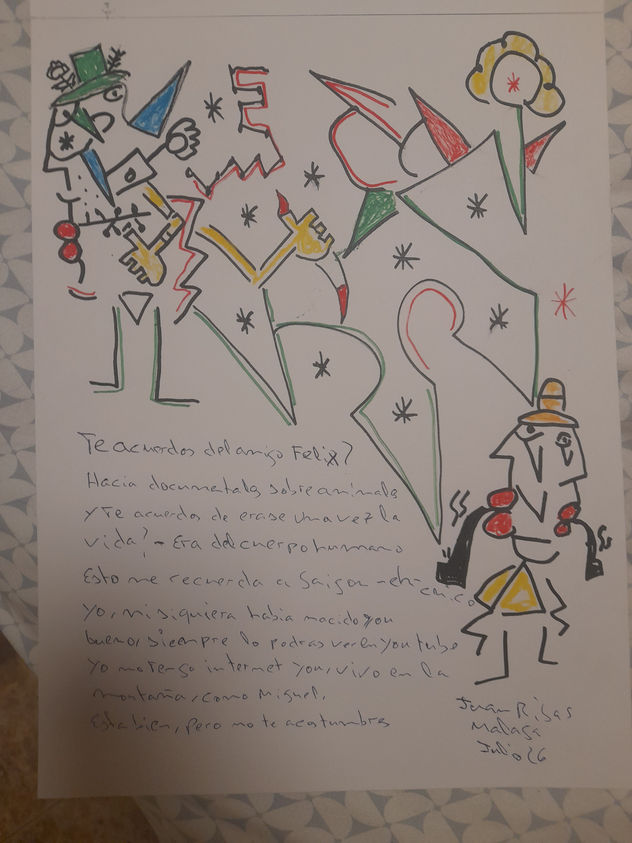 Te acuerdas del amigo Felix?
Hacia documentales sobre animales
y Te acuerdas de erase una vez la
vida? - Era del cuerpo humano
Esto me recuerda a Saigon - eh chico
yo, ni siquiera habia nacido
bueno, siempre lo podras ver en you tube
yo no Tengo internet vivo en la
montaña, como Miguel,
Esta bien, pero no te acostumbres
Juan Ribas
Malaga
Julio 26